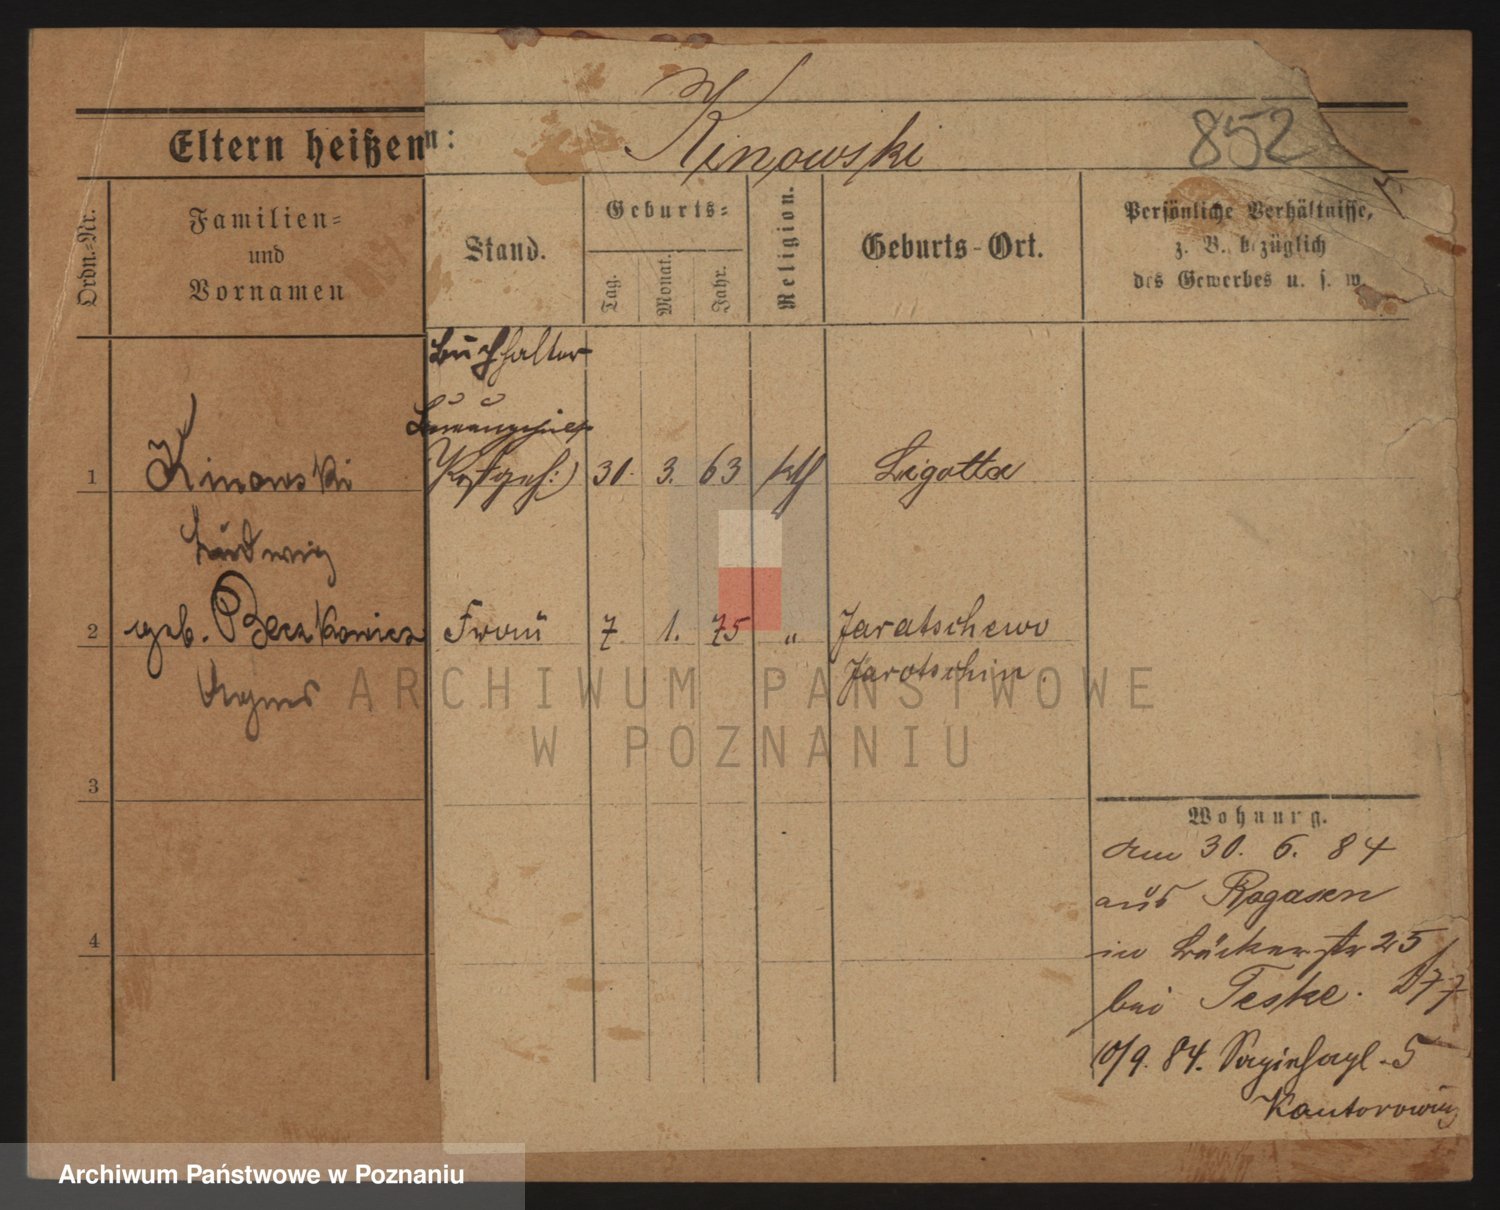 Kinowski
852
Eltern heißen:
Ordn.-Nr.
Familien-
und
Vornamen
Stand.
Geburts-
Tag.
Monat.
Jahr.
Religion.
Geburts-Ort.
Persönliche Verhältnisse,
z. B. bezüglich
des Gewerbes u. s. w.
Buchhalter
1 Kinowski 30. 3. 63 kth Ligotta
Ludwig
2 geb. Frau 7 1. 75 " Jaratschewo
Agnes Jarotschin.
ARCHIWUM PAŃSTWOWE
W POZNANIU
3
Wohnung.
am 30. 6. 84
aus Rogasen
in Bäckerstr 25
4
bei Teske.
10/9. 84. 5
Kantorowicz
Archiwum Państwowe w Poznaniu